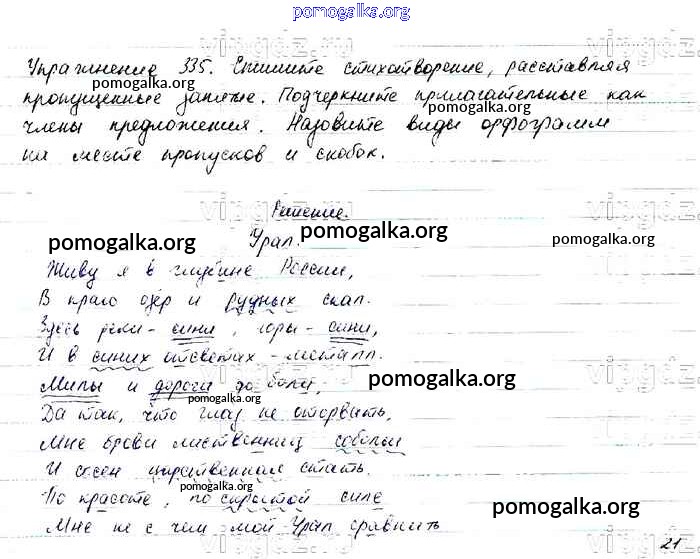 pomogalka.org
Упражнение 335. Спишите стихотворение, расставляя
pomogalka.org
пропущенные запятые. Подчеркните прилагательные как
члены предложения. Назовите виды орфограмм
на месте пропусков и скобок.
Решение.
pomogalka.org
Урал.
pomogalka.org
pomogalka.org
Живу я в глубине России,
В краю озёр и рудных скал.
Здесь реки - сини, горы - сини,
И в синих отсветах - металл.
Милы и дороги до боли,
pomogalka.org
pomogalka.org
Да так, что глаз не оторвать,
Мне брови лиственниц собольи
И сосен царственная стать.
pomogalka.org
По красоте, по скрытой силе
pomogalka.org
Мне не с чем мой Урал сравнить
pomogalka.org
21